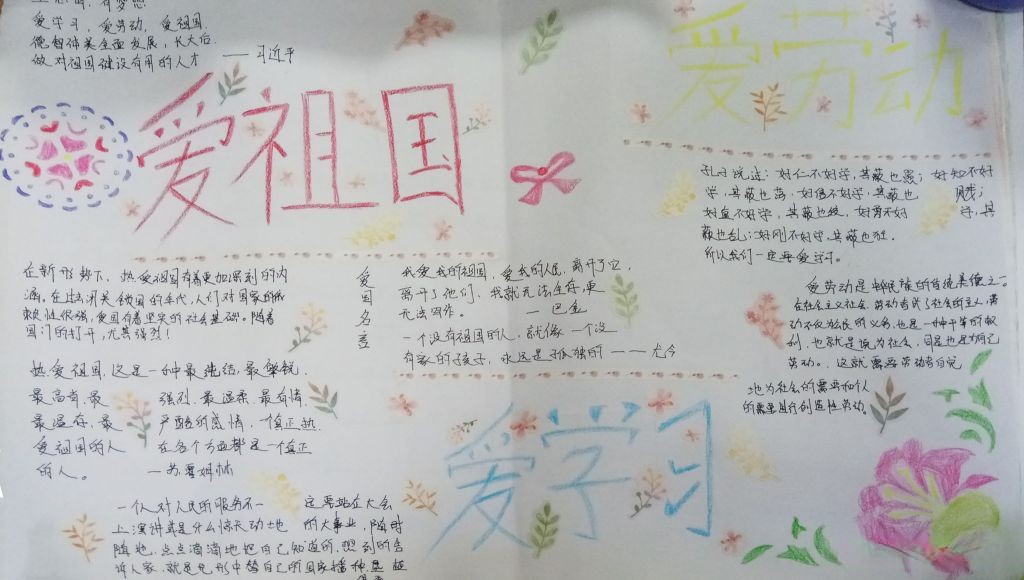 爱学习，爱劳动，爱祖国.
德智体美全面发展，长大后.
做对祖国建设有用的人才 ——习近平
爱祖国
爱劳动
在新形势下、热爱祖国有着更加深刻的内
涵，在过去闭关锁国的年代，人们对国家的依
赖性很强，爱国有着坚实的社会基础。随着
国门的打开，尤其强烈！
爱国名言
我爱我的祖国，爱我的人民，离开了它，
离开了他们、我就无法生存，更
无法写作。 —巴金
一个没有祖国的人，就像一个没
有家的孩子，永远是孤独的 ——尤今
孔子说过：好仁不好学，其蔽也愚；好知不好
学，其蔽也荡，好信不好学，其蔽也 贼；
好直不好学，其蔽也绞，好勇不好 学，其
蔽也乱；好刚不好学，其蔽也狂.
所以我们一定要爱学习。
爱劳动是中华民族的传统美德之一。
在社会主义社会，劳动者成了社会的主人，劳
动不仅为公民的义务，也是一种平等的权
利，也就是说为社会，同是也是为自己
劳动。，这就需要劳动者自觉
地为社会的需要和个人
的需要进行创造性劳动。
热爱祖国，这是一种最纯洁、最敏锐、
最高尚、最 强烈、最温柔、最有情、
最温存、最 严酷的感情。一个真正热
爱祖国的人 在各个方面都是一个真正
的人。 —苏霍姆林
爱学习
一个人对人民的服务不一 定要站在大会
上演讲或是什么惊天动地 的大事业，随时
随地，点点滴滴地把自己知道的，想到的告
诉人家，就是无形中替自己的国家播种